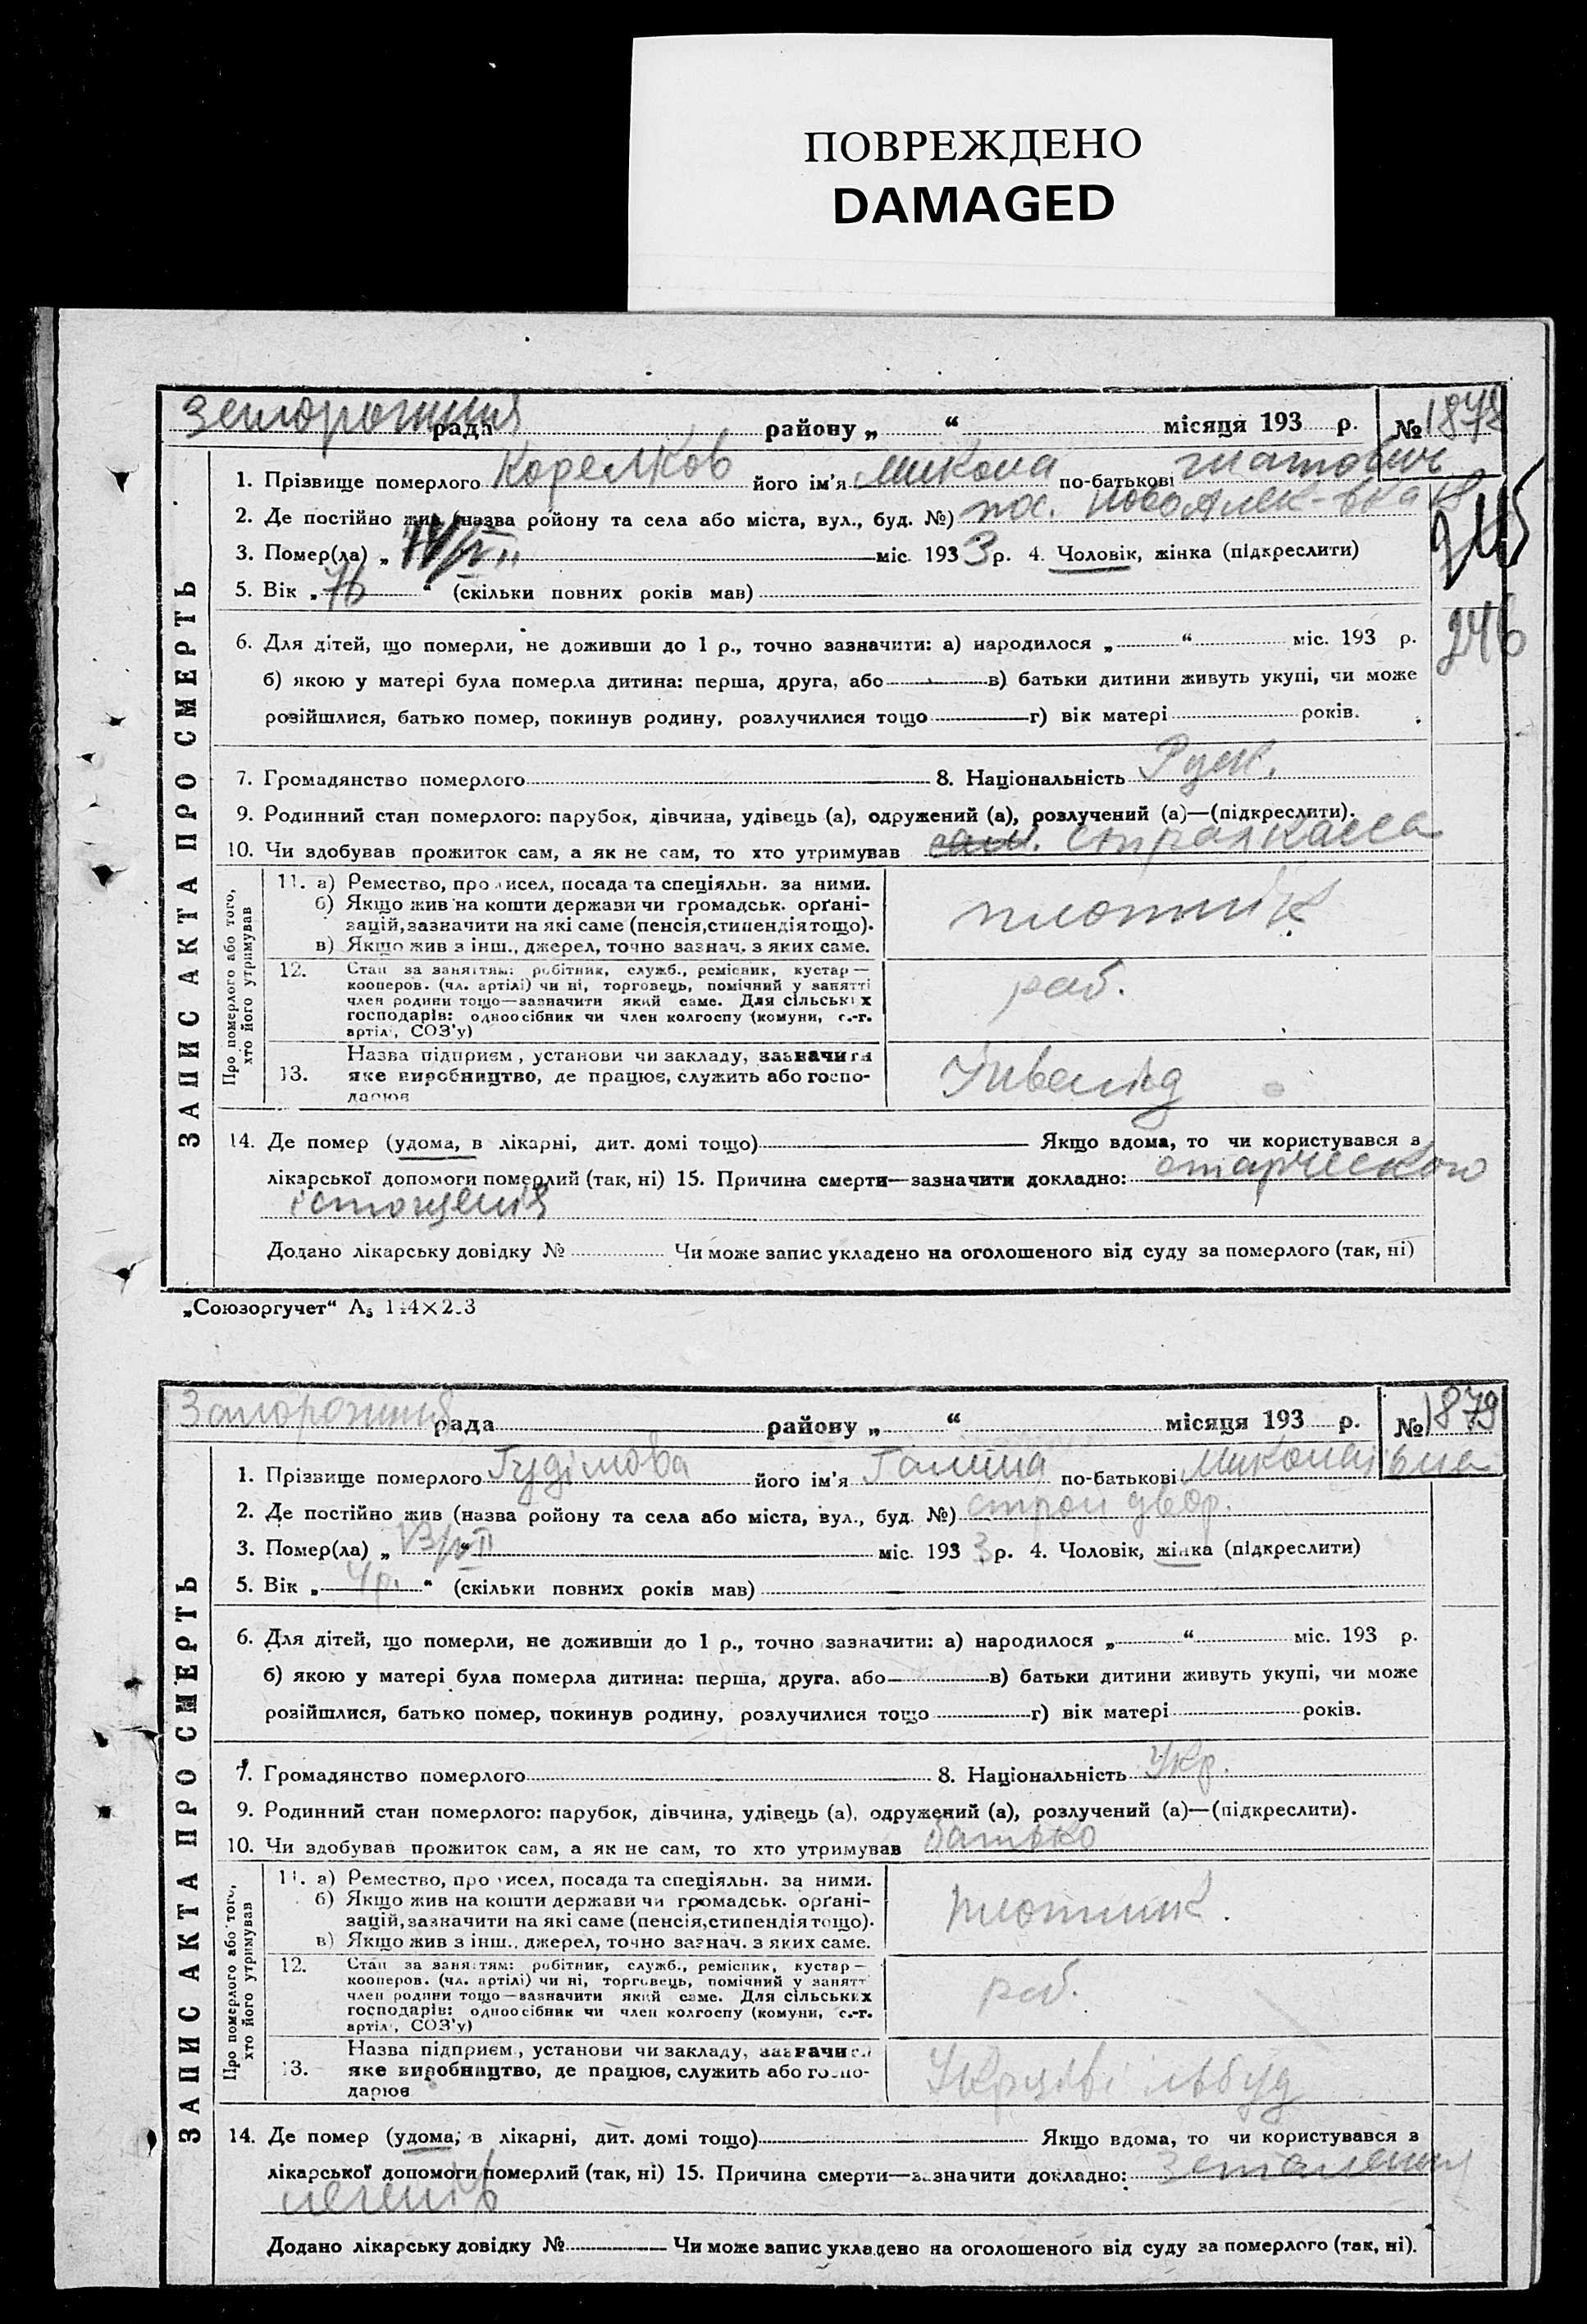 ПОВРЕЖДЕНО
DAMAGED
рада районy „ “ місяця 193 р. № 1878
1. Прізвище померлого Корелков його ім'я Микола по-батькові Гнатович
2. Де постійно жив (назва ройону та села або міста, вул., буд. №) пос. Новоалек-вка 18
3. Помер(ла) „ міс. 193 3 р. 4. Чоловік, жінка (підкреслити)
245
5. Вік „ 76 “ (скільки повних років мав)
246
6. Для дітей, що померли, не доживши до 1 р., точно зазначити: а) народилося „ “ міс. 193 р.
б) якою у матері була померла дитина: перша, друга, або в) батьки дитини живуть укупі, чи може
розійшлися, батько помер, покинув родину, розлучилися тощо г) вік матері років.
7. Громадянство померлого 8. Національність Руск.
9. Родинний стан померлого: парубок, дівчина, удівець (а), одружений (а), розлучений (а)—(підкреслити).
10. Чи здобував прожиток сам, а як не сам, то хто утримував сам. страхкасса
ЗАПИС АКТА ПРО СМЕРТЬ
Про померлого або того, хто його утримував
11. а) Ремество, промисел, посада та спеціяльн. за ними.
б) Якщо жив на кошти держави чи громадськ. орґані-
зацій, зазначити на які саме (пенсія, стипендія тощо).
в) Якщо жив з інш., джерел, точно зазнач. з яких саме.
плотнік
12. Стан за заняттям: робітник, служб., ремісник, кустар—
кооперов. (чл. артілі) чи ні, торговець, помічний у занятті
член родини тощо—зазначити який саме. Для сільських
господарів: одноосібник чи член колгоспу (комуни, с.-г.
артілі, СОЗ'у)
раб.
13. Назва підприєм., установи чи закладу, зазначити
яке виробництво, де працює, служить або госпо-
дарює
Інвалід
14. Де помер (удома, в лікарні, дит. домі тощо) Якщо вдома, то чи користувався з
лікарської допомоги померлий (так, ні) 15. Причина смерти—зазначити докладно: старческого
істощенія
Додано лікарську довідку № Чи може запис укладено на оголошеного від суду за померлого (так, ні)
„Союзоргучет“ А₅
рада району „ “ місяця 193 р. № 1879
1. Прізвище померлого Гудімова його ім'я Галина по-батькові Миколаївна
2. Де постійно жив (назва ройону та села або міста, вул., буд. №) строй двор.
3. Помер(ла) „ “ міс. 193 3 р. 4. Чоловік, жінка (підкреслити)
5. Вік „ 4 р. “ (скільки повних років мав)
6. Для дітей, що померли, не доживши до 1 р., точно зазначити: а) народилося „ “ міс. 193 р.
б) якою у матері була померла дитина: перша, друга, або в) батьки дитини живуть укупі, чи може
розійшлися, батько помер, покинув родину, розлучилися тощо г) вік матері років.
7. Громадянство померлого 8. Національність Укр.
9. Родинний стан померлого: парубок, дівчина, удівець (а), одружений (а), розлучений (а)—(підкреслити).
10. Чи здобував прожиток сам, а як не сам, то хто утримував батько
ЗАПИС АКТА ПРО СМЕРТЬ
Про померлого або того, хто його утримував
11. а) Ремество, промисел, посада та спеціяльн. за ними.
б) Якщо жив на кошти держави чи громадськ. орґані-
зацій, зазначити на які саме (пенсія, стипендія тощо).
в) Якщо жив з інш., джерел, точно зазнач. з яких саме.
плотник.
12. Стан за заняттям: робітник, служб., ремісник, кустар—
кооперов. (чл. артілі) чи ні, торговець, помічний у занятт
член родини тощо—зазначити який саме. Для сільських
господарів: одноосібник чи член колгоспу (комуни, с.-г.
артілі, СОЗ'у)
раб.
13. Назва підприєм., установи чи закладу, зазначити
яке виробництво, де працює, служить або госпо-
дарює
Укрцівільбуд
14. Де помер (удома, в лікарні, дит. домі тощо) Якщо вдома, то чи користувався з
лікарської допомоги померлий (так, ні) 15. Причина смерти—зазначити докладно:
легенів
Додано лікарську довідку № Чи може запис укладено на оголошеного від суду за померлого (так, ні).